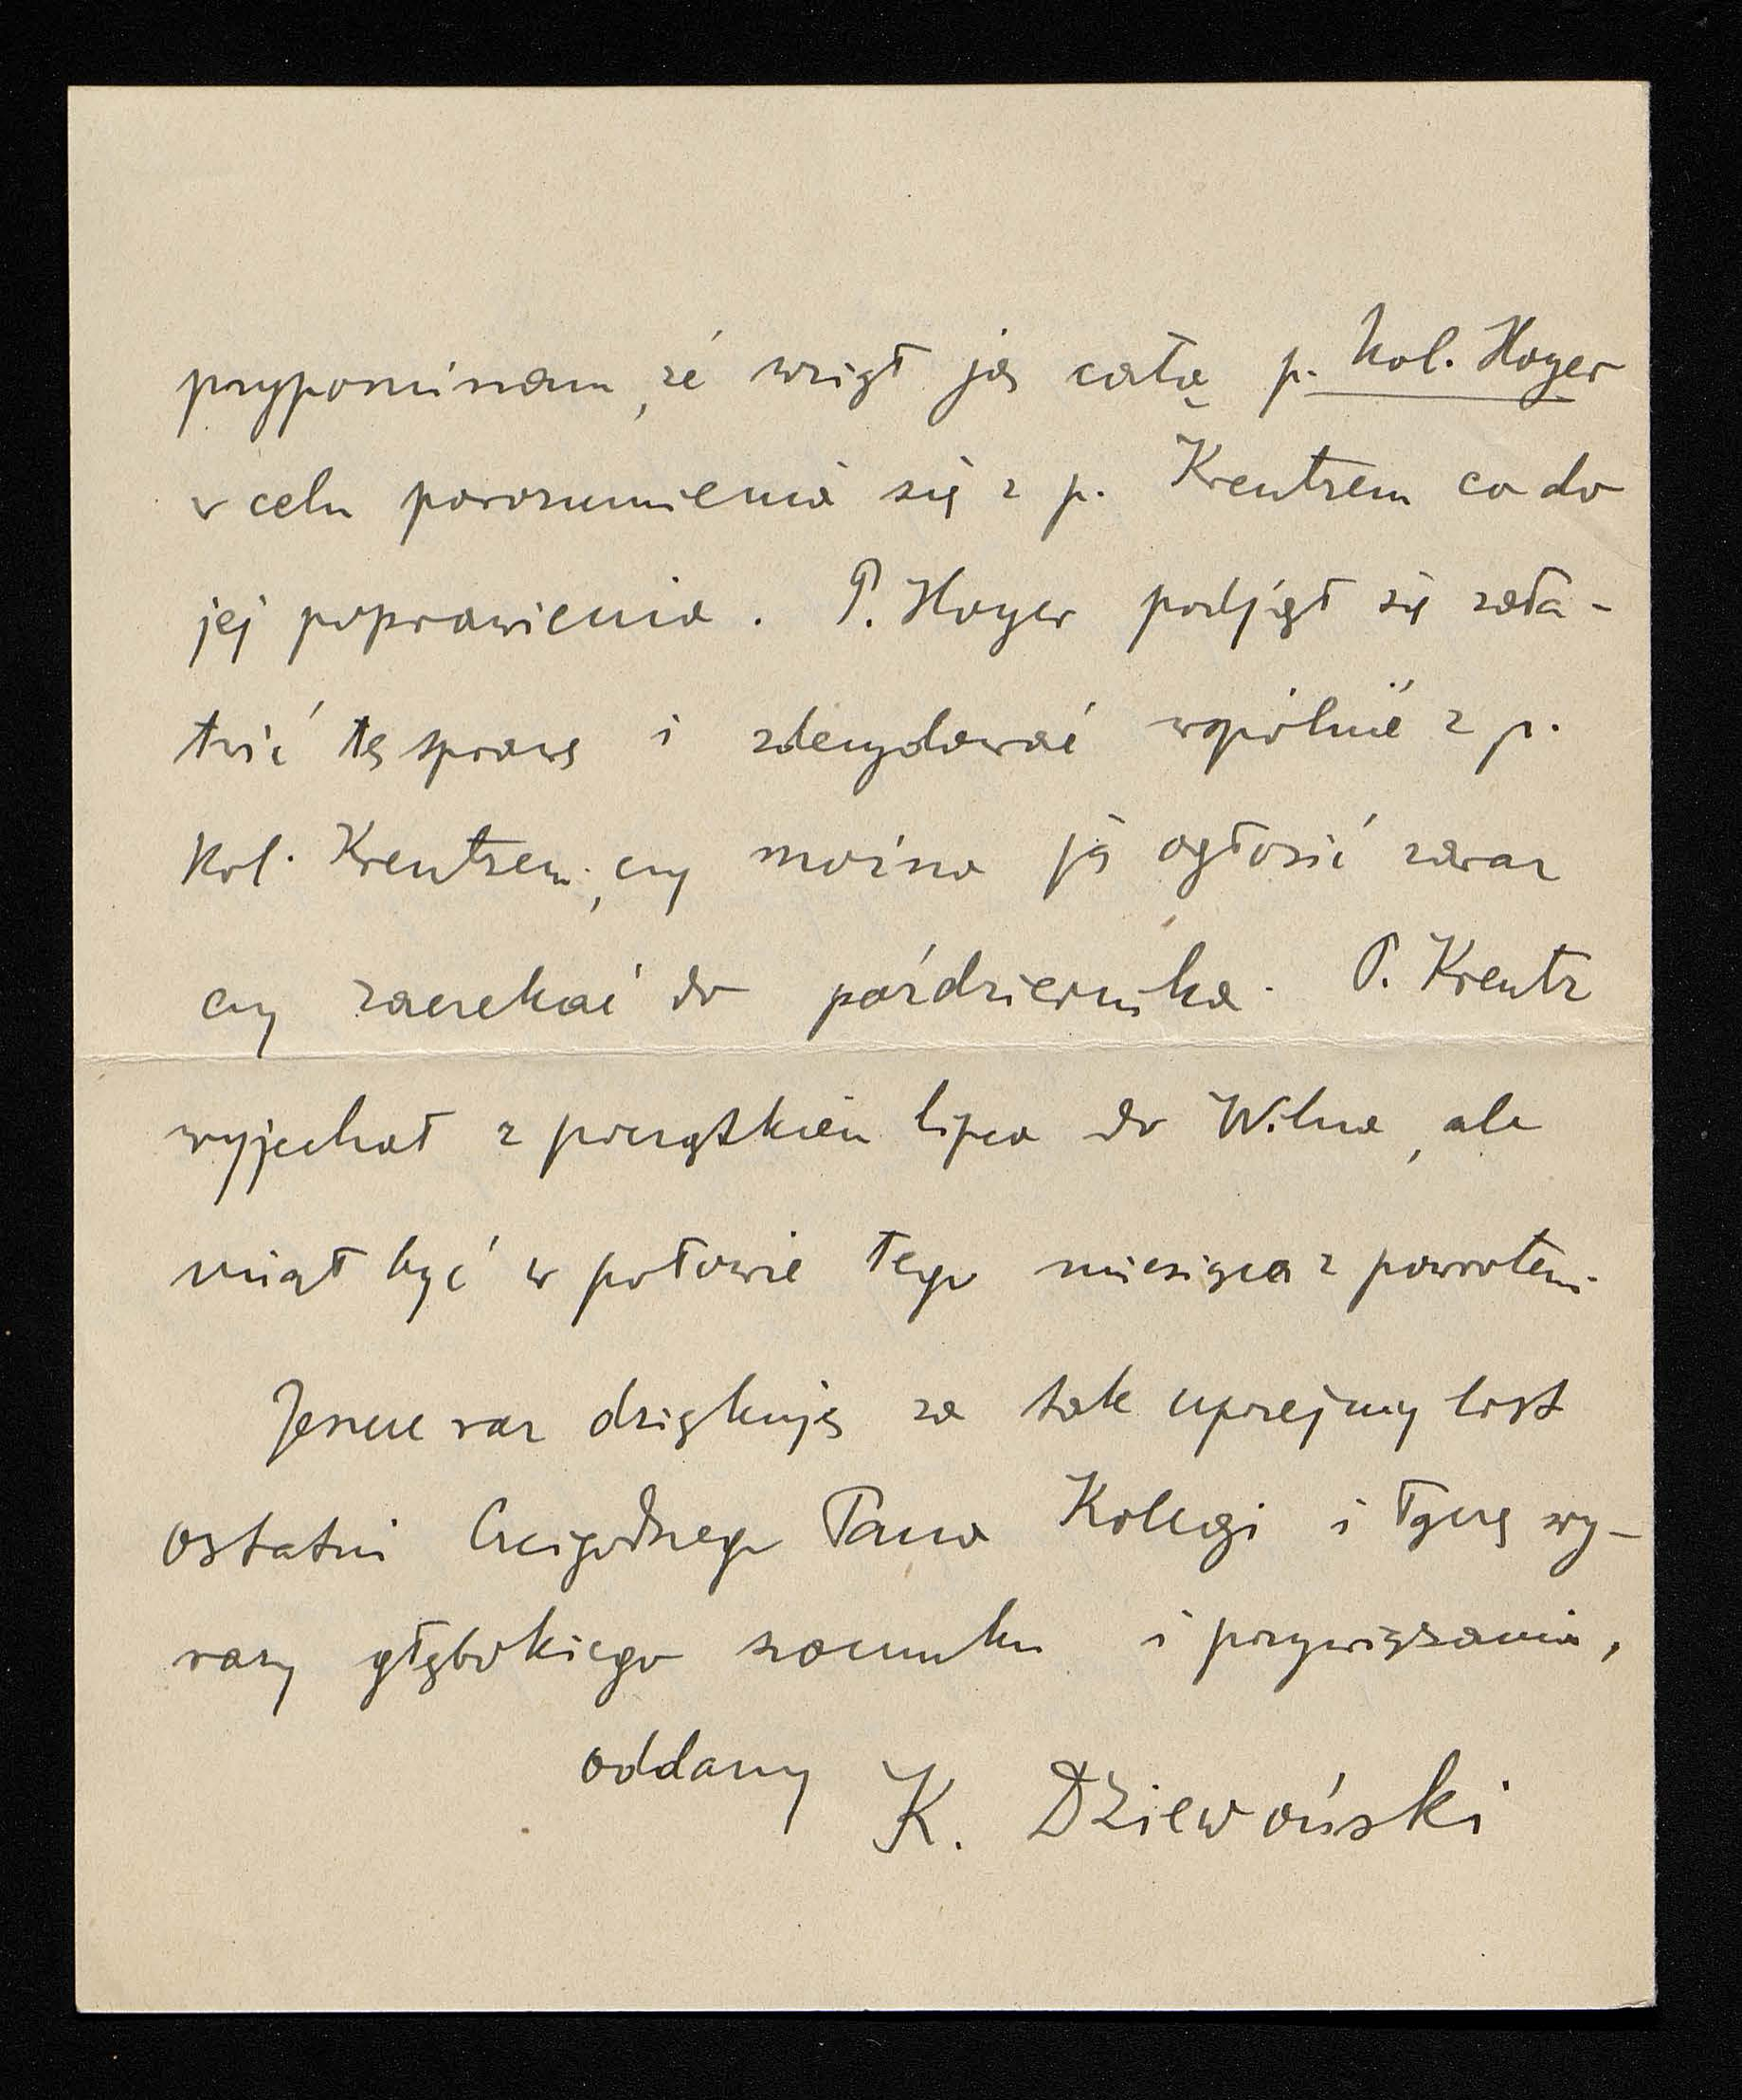 przypominam, że wziął ją całą p. Kol. Hoyer
w celu porozumienia się z p. Kreutzem co do
jej poprawienia. P. Hoyer podjął się zała-
twić tę sprawę i zdecydować wspólnie z p.
Kol. Kreutzem, czy można ją ogłosić zaraz
czy zaczekać do października. P. Kreutz
wyjechał z początkiem lipca do Wilna, ale
miał być w połowie tego miesiąca z powrotem.
Jeszcze raz dziękuję za tak uprzejmy list
ostatni Czcigodnego Pana Kolegi i łączę wy-
razy głębokiego szacunku i przywiązania,
oddany K. Dziewoński